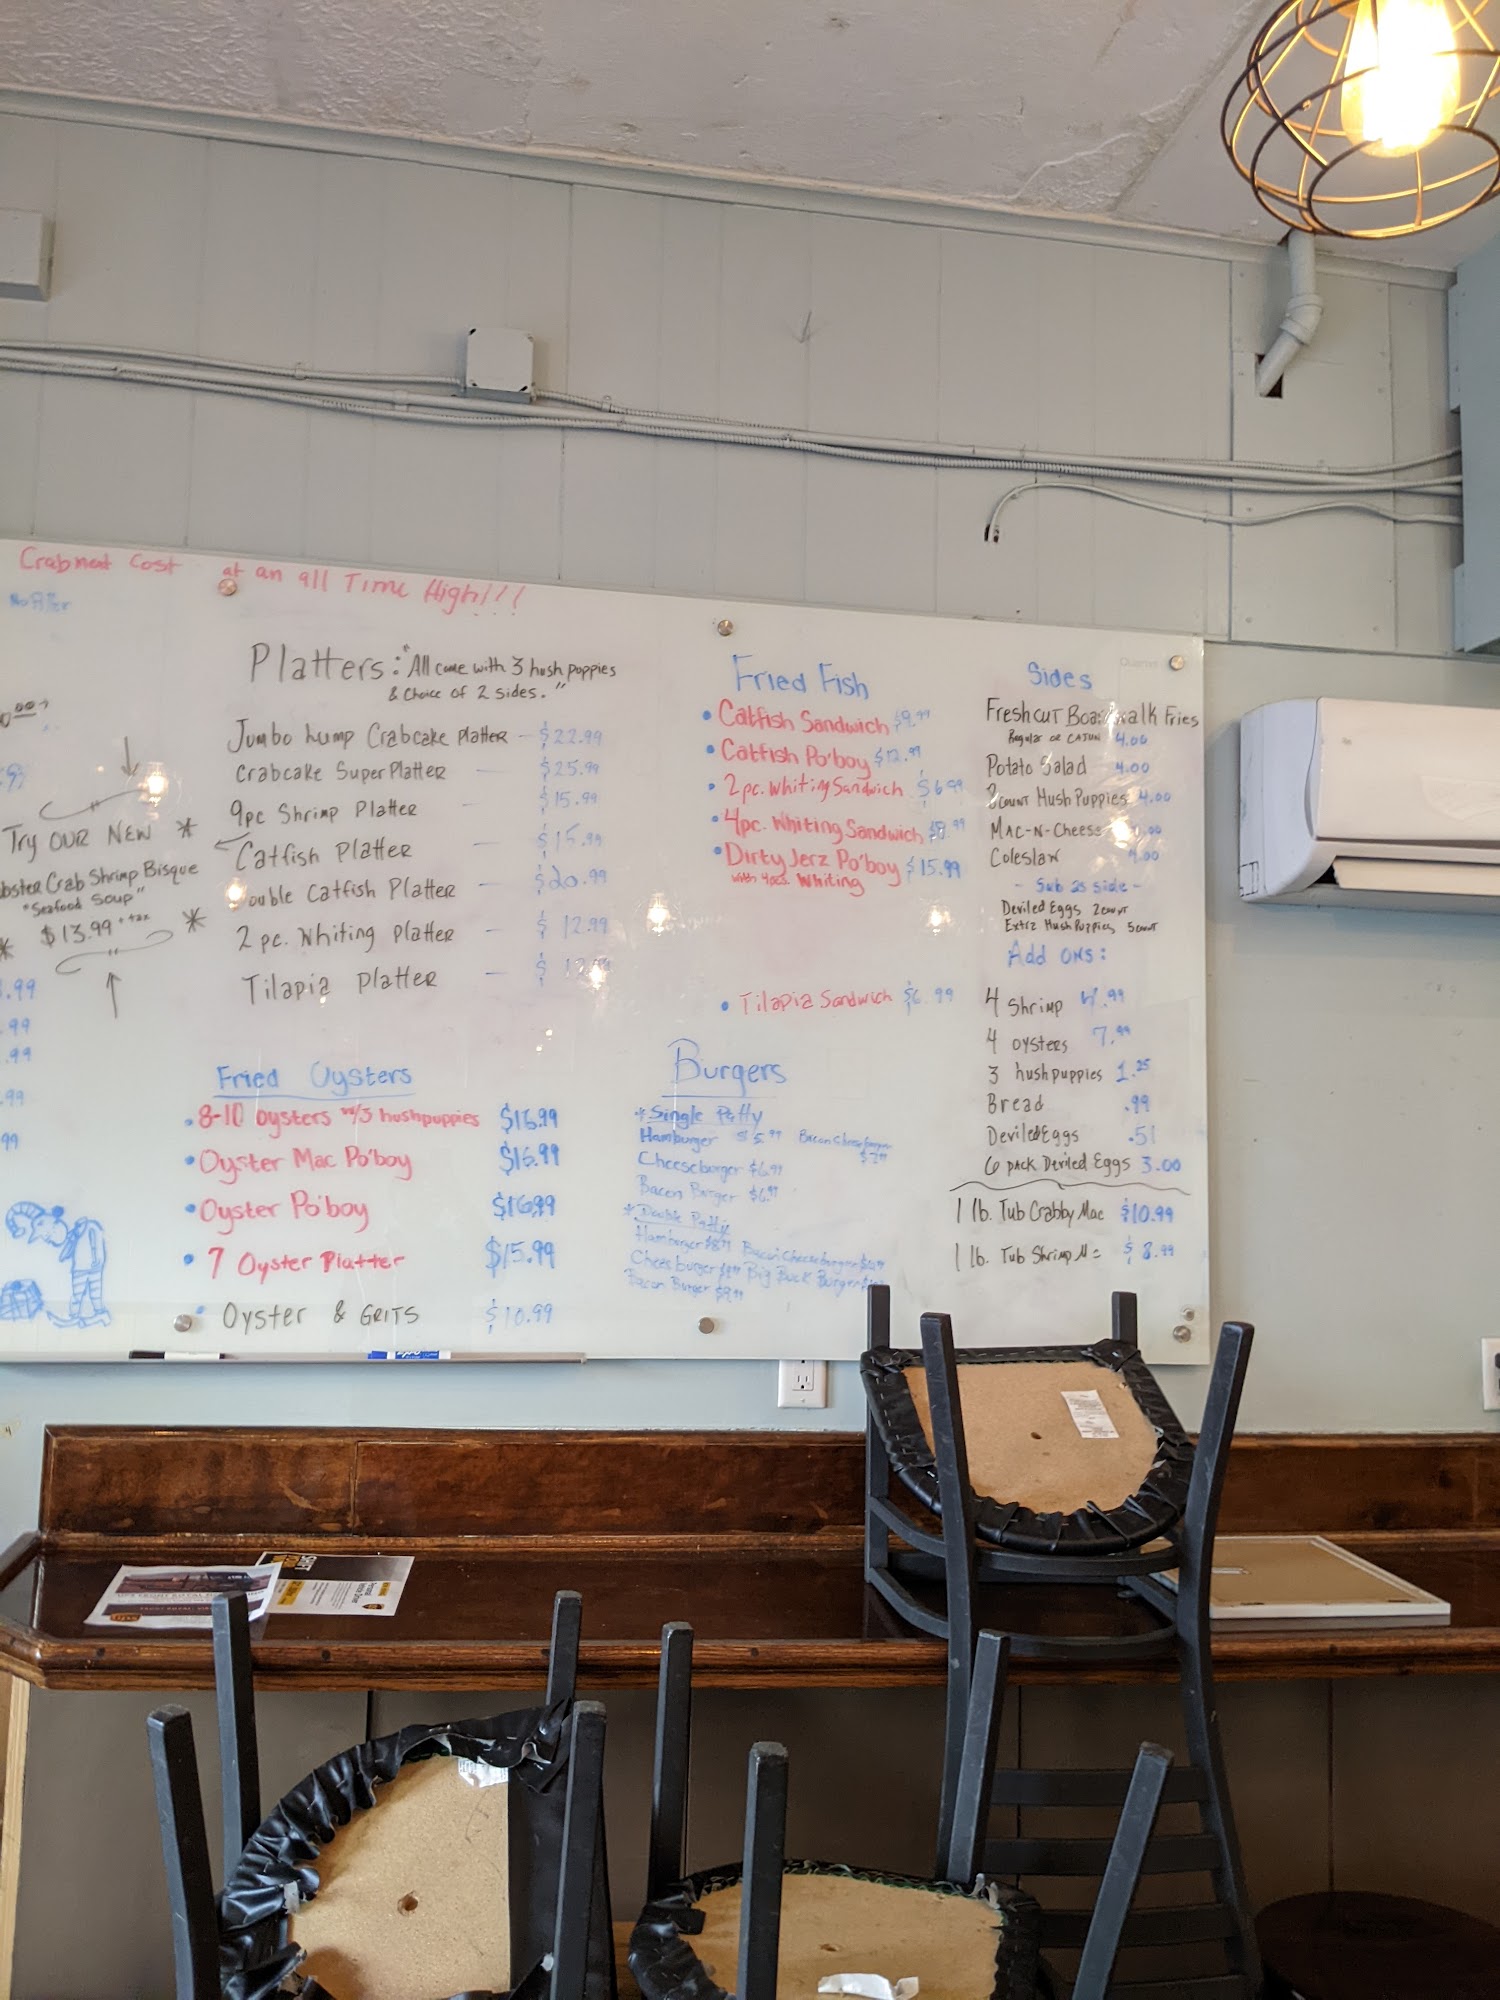 Crabmeat Cost at an all Time High!!!
Try OUR NEW
Crab Shrimp Bisque
"Seafood Soup"
$13.99 + tax
.99
.99
.99
.99
99
Platters: "All come with 3 hush puppies
& Choice of 2 sides."
Jumbo Lump Crabcake Platter - $22.99
Crabcake Super Platter — $25.99
9pc Shrimp Platter - $15.99
Catfish Platter — $15.99
Double Catfish Platter — $20.99
2 pc. Whiting Platter — $12.99
Tilapia Platter — $
Fried Oysters
8-10 oysters w/3 hushpuppies $16.99
Oyster Mac Po'boy $16.99
Oyster Po'boy $16.99
7 Oyster Platter $15.99
Oyster & GRITS $10.99
Fried Fish
Catfish Sandwich $9.99
Catfish Po'boy $12.99
2pc. Whiting Sandwich $6.99
4pc. Whiting Sandwich
Dirty Jerz Po'boy $15.99
with 4pcs. Whiting
Tilapia Sandwich $6.99
Burgers
*Single Patty
Hamburger $5.99 Bacon Cheeseburger
Cheeseburger $6.99
Bacon Burger $6.99
*Double Patty
Hamburger Bacon Cheeseburger
Cheeseburger Big Buck Burger
Bacon Burger $9.99
Quartet
Sides
Freshcut Boardwalk Fries
Regular or CAJUN 4.00
Potato Salad 4.00
8count Hush Puppies 4.00
MAC-N-Cheese
Coleslaw 4.00
- Sub as side -
Deviled Eggs 2count
Extra Hush Puppies 5count
Add ONS:
4 Shrimp 4.99
4 oysters 7.99
3 hushpuppies 1.25
Bread .99
Deviled Eggs .51
6 pack Deviled Eggs 3.00
1 lb. Tub Crabby Mac $10.99
1 lb. Tub Shrimp M $8.99